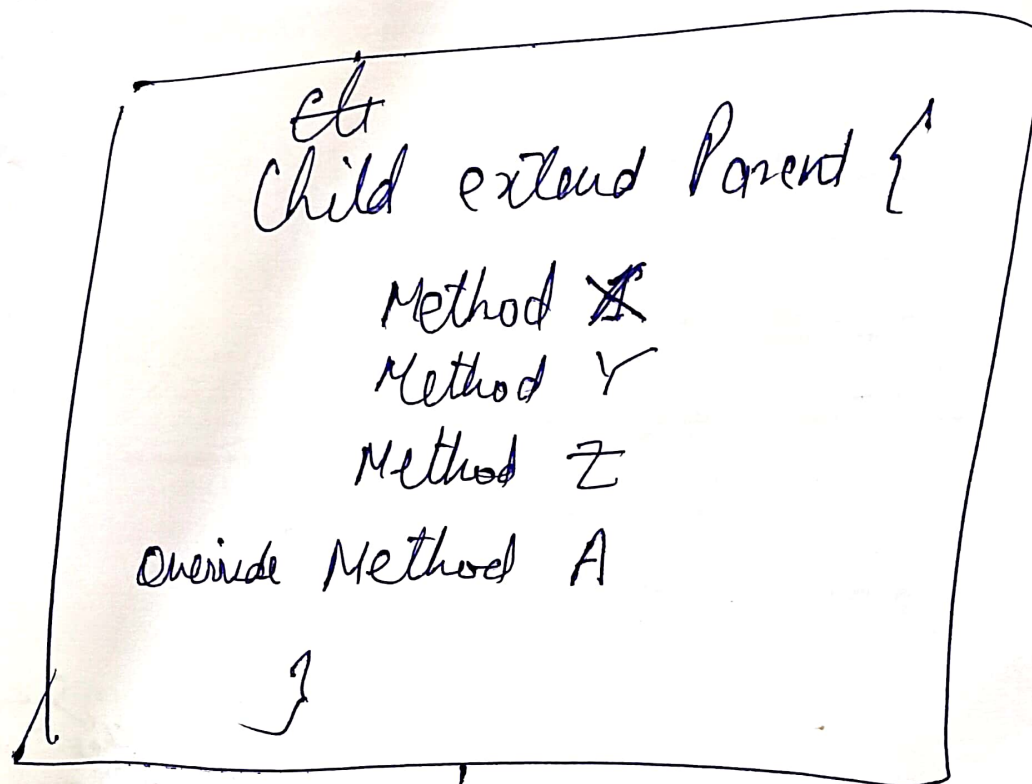 Child extend Parent {
Method X
Method Y
Method Z
Override Method A
}